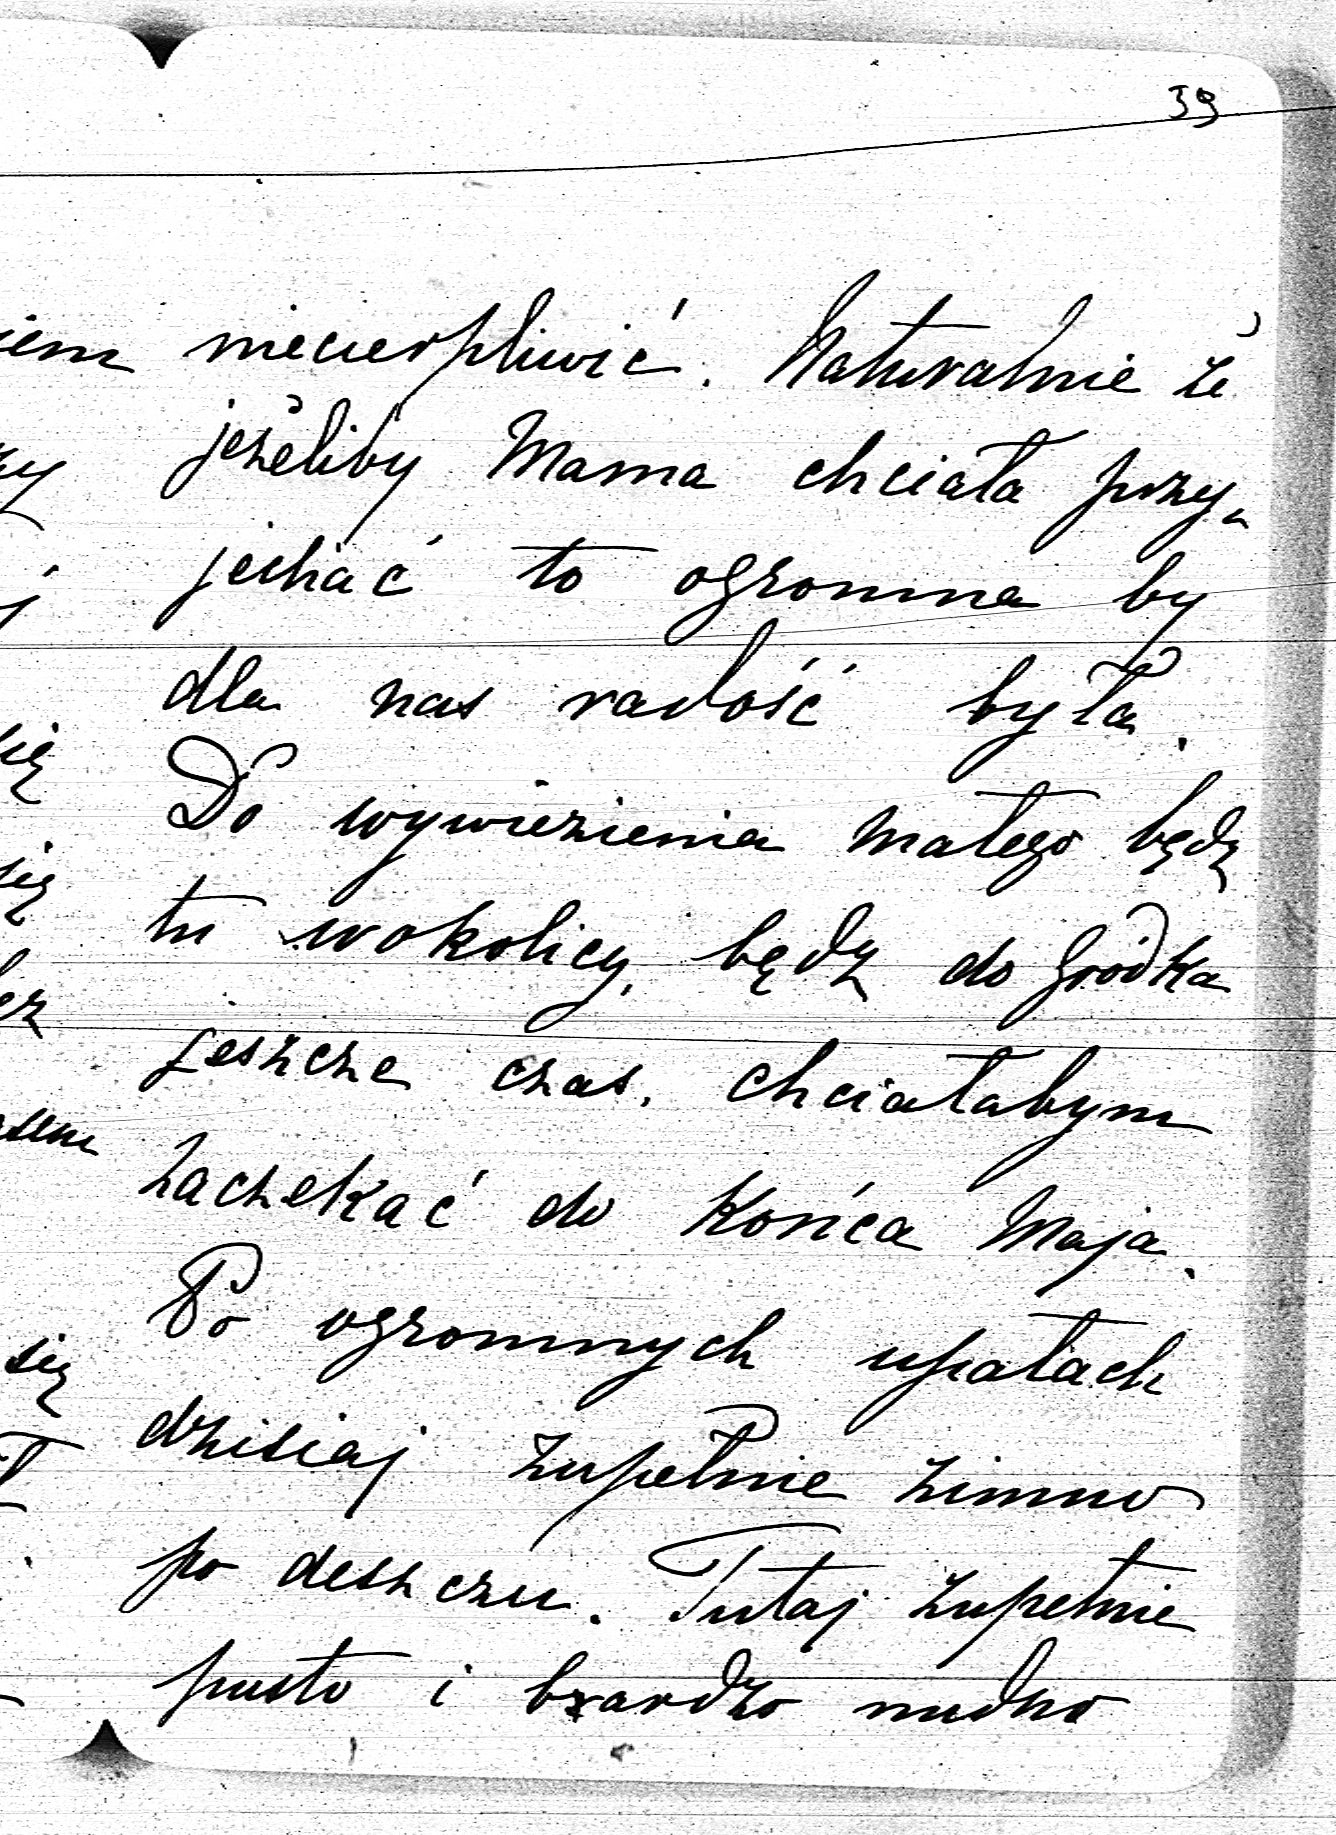 39
niecierpliwić. Naturalnie że
jeżeliby Mama chciała przy„
jechać to ogromna by
dla nas radość była.
Do wywiezienia małego będź
tu wokolicy, będź do Gródka
jeszcze czas. chciałabym
zaczekać do końca Maja.
Po ogromnych upałach
dzisiaj zupełnie zimno
po deszczu. Tutaj zupełnie
pusto i bardzo nudno